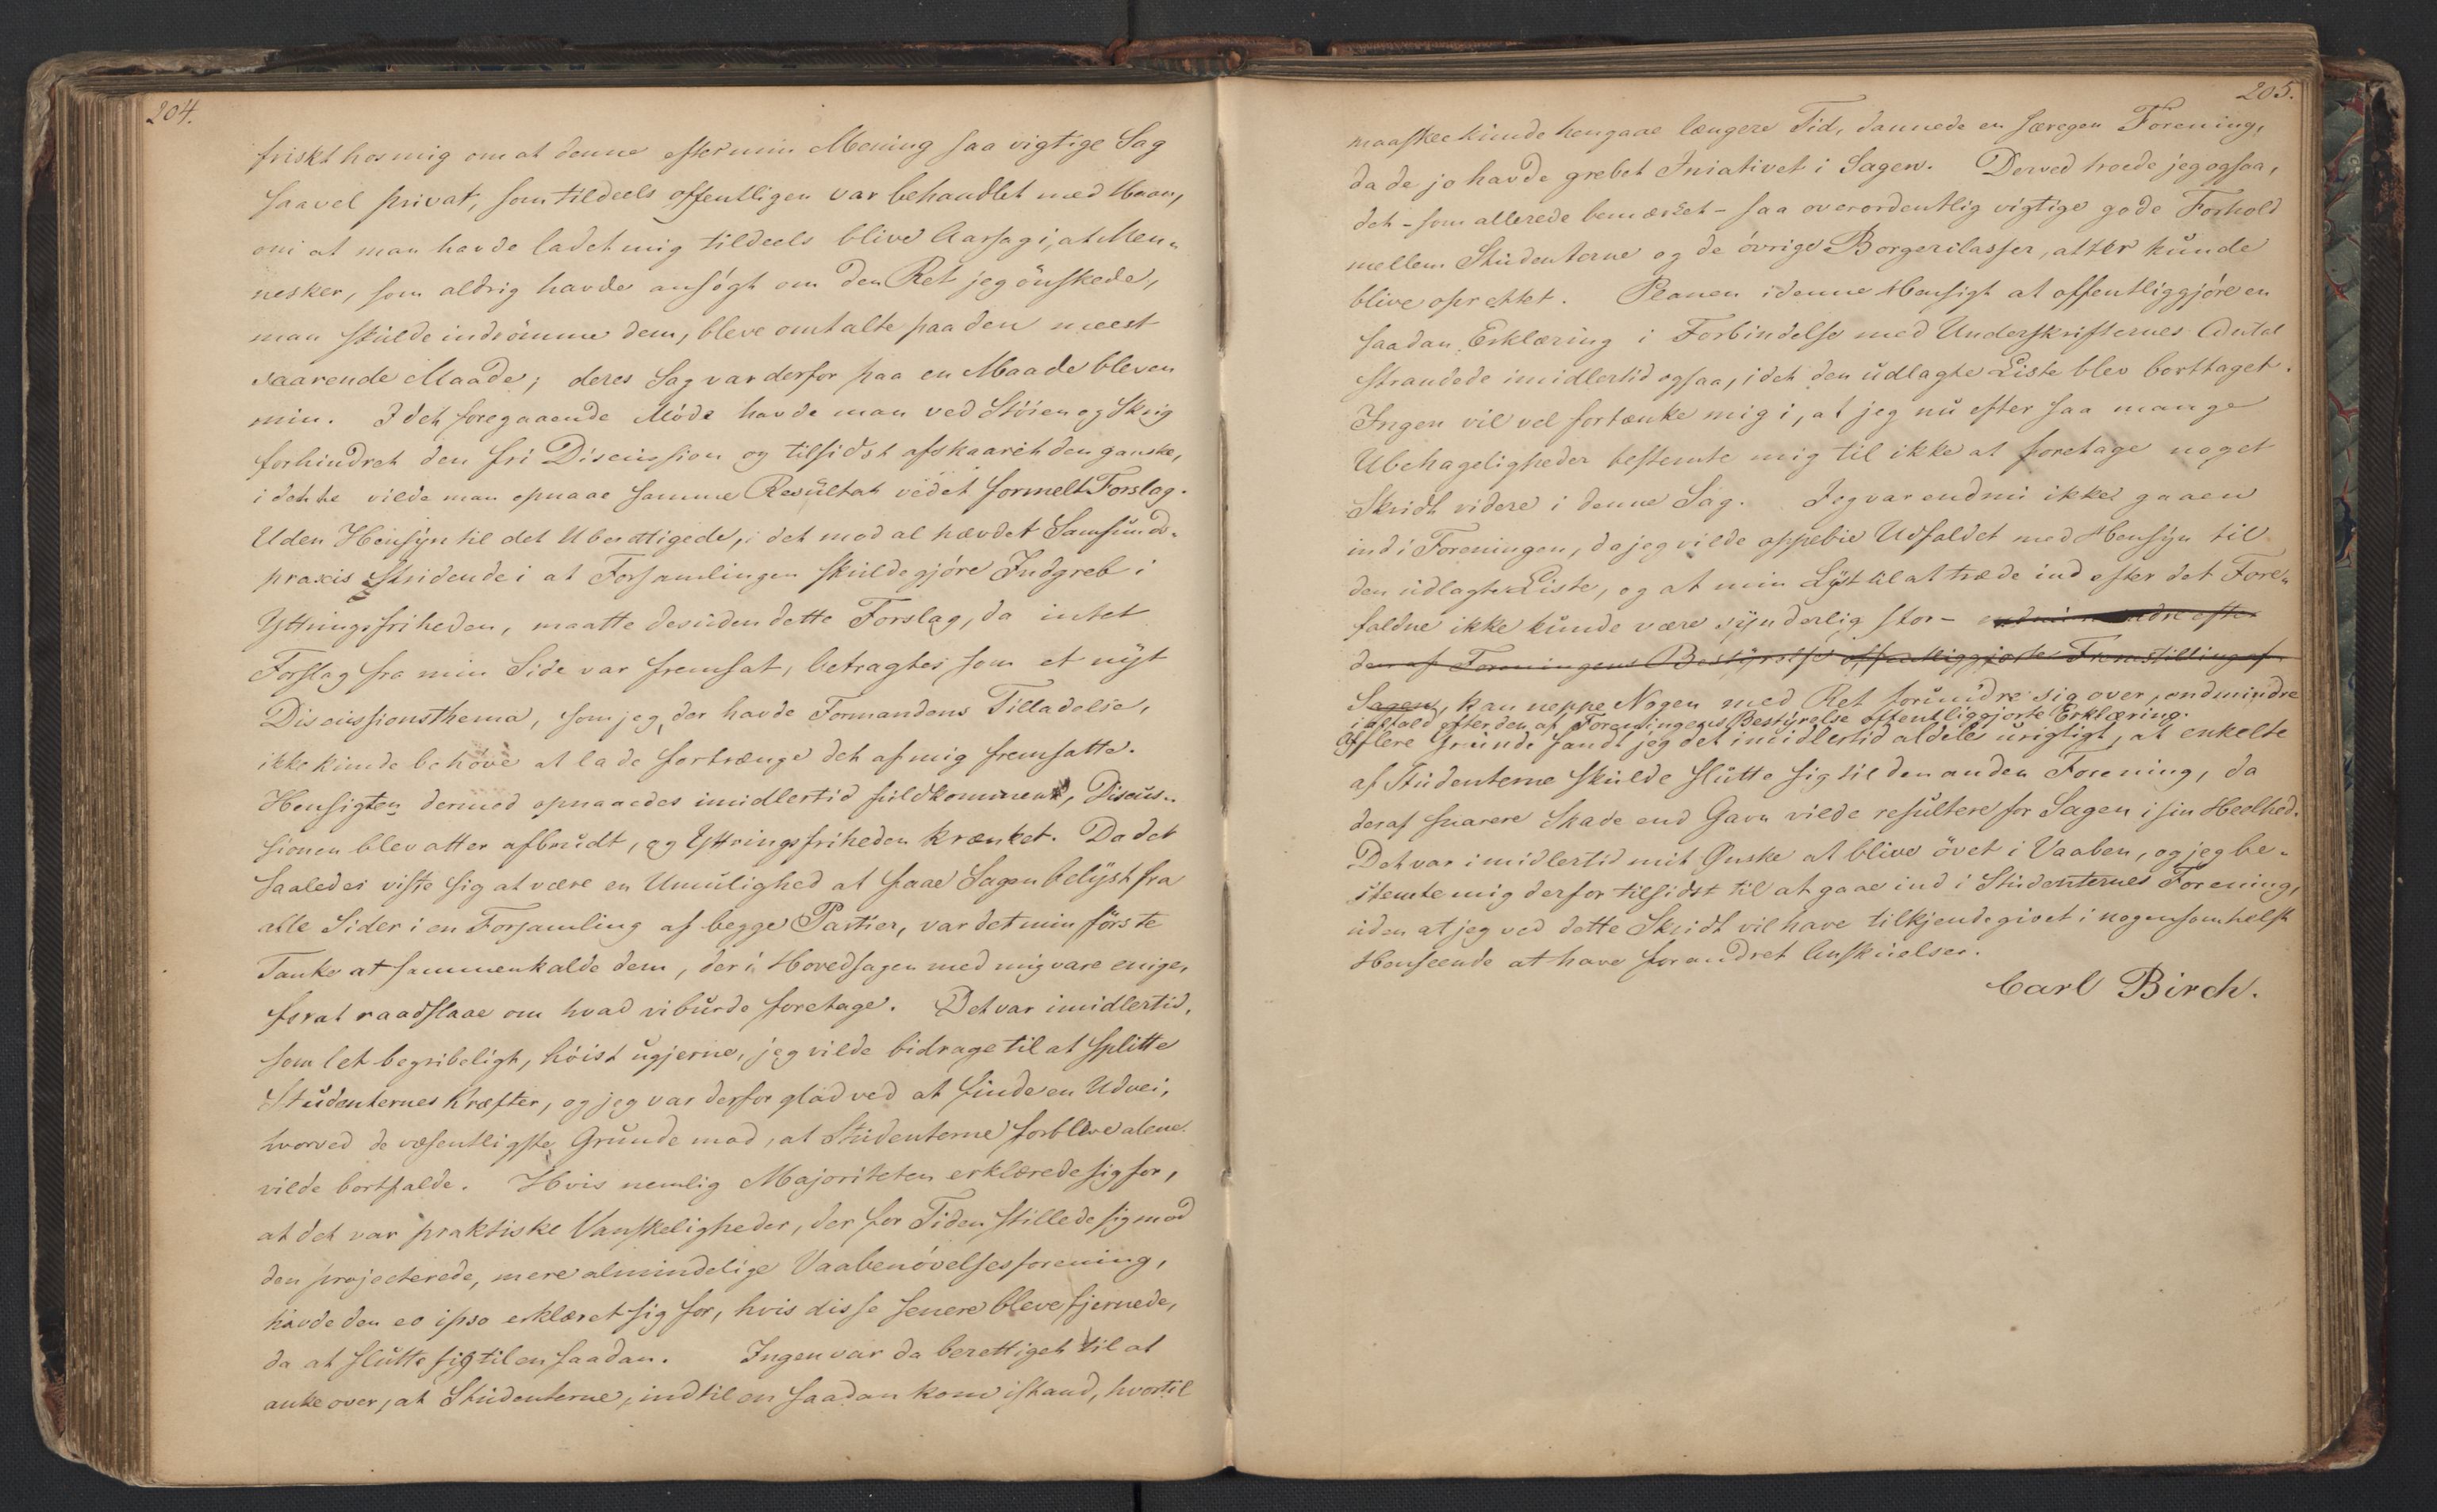 204.
friskt hos mig om at denne efter min Mening saa vigtige Sag
saavel privat, som tildeels offentligen var behandlet med Haan,
om at man havde ladet mig tildeels blive Aarsag i, at Men-
nesker, som aldrig havde ansøgt om den Ret jeg ønskede,
man skulde indrømme dem, bleve omtalte paa den meest
saarende Maade; deres Sag var derfor paa en Maade bleven
min. I det foregaaende Møde havde man ved Støien og Skrig
forhindret den fri Discussion og tilsidst afskaaret den ganske,
i dette vilde man opnaae samme Resultat ved et formelt Forslag.
Uden Hensyn til det Uberettigede, i det mod al hævdet Samfunds-
praxis stridende i at Forsamlingen skulde gjøre Indgreb i
Yttringsfriheden, maatte desuden dette Forslag, da intet
Forslag fra min Side var fremsat, betragtes som et nyt
Discussionsthema, som jeg, der havde Formandens Tilladelse,
ikke kunde behøve at lade fortrænge det af mig fremsatte.
Hensigten dermed opnaaedes imidlertid fuldkomment, Discus-
sionen blev atter afbrudt, og Yttringsfriheden krænket. Da det
saaledes viste sig at være en Umulighed at faae Sagen belyst fra
alle Sider i en Forsamling af begge Partier, var det min første
Tanke at sammenkalde dem, der i Hovedsagen med mig vare enige,
for at raadslaae om hvad vi burde foretage. Det var imidlertid,
som let begribeligt, høist ugjerne, jeg vilde bidrage til at splitte
Studenternes Kræfter, og jeg var derfor glad ved at finde en Udvei,
hvorved de væsentligste Grunde mod, at Studenterne forbleve alene
vilde bortfalde. Hvis nemlig Majoriteten erklærede sig for,
at det var praktiske Vanskeligheder, der for Tiden stillede sig mod
den projecterede, mere almindelige Vaabenøvelsesforening,
havde den eo ipso erklæret sig for, hvis disse senere bleve fjernede,
da at slutte sig til en saadan. Ingen var da berettiget til at
anke over, at Studenterne, indtil en saadan kom istand, hvortil
205.
maaskee kunde hengaae længere Tid, dannede en særegen Forening,
da de jo havde grebet Iniativet i Sagen. Derved troede jeg ogsaa,
det - som allerede bemærket - saa overordentlig vigtige gode Forhold
mellem Studenterne og de øvrige Borgerclasser, atter kunde
blive oprettet. Planen i denne Hensigt at offentliggjøre en
saadan Erklæring i Forbindelse med Underskrifternes Antal
strandede imidlertid ogsaa, idet den udlagte Liste blev borttaget.
Ingen vil vel fortænke mig i, at jeg nu efter saa mange
Ubehageligheder bestemte mig til ikke at foretage noget
Skridt videre i denne Sag. Jeg var endnu ikke gaaen
ind i Foreningen, da jeg vilde oppebie Udfaldet med Hensyn til
den udlagte Liste, og at min Lyst til at træde ind efter det Fore-
faldne ikke kunde være synderlig stor - endnu mindre efter
den af Foreningens Bestyrelse offentliggjorte Fremstilling af
Sagen, kan neppe Nogen med Ret forundre sig over, endmindre
i alfald efter den af Foreningens Bestyrelse offentliggjorte Erklæring.
Af flere Grunde fandt jeg det imidlertid aldeles urigtigt, at enkelte
af Studenterne skulde slutte sig til den anden Forening, da
deraf snarere Skade end Gavn vilde resultere for Sagen i sin Heelhed.
Det var imidlertid mit Ønske at blive øvet i Vaaben, og jeg be-
stemte mig derfor tilsidst til at gaae ind i Studenternes Forening,
uden at jeg ved dette Skridt vil have tilkjendegivet i nogensomhelst
Henseende at have forandret Anskuelser.
Carl Birch.